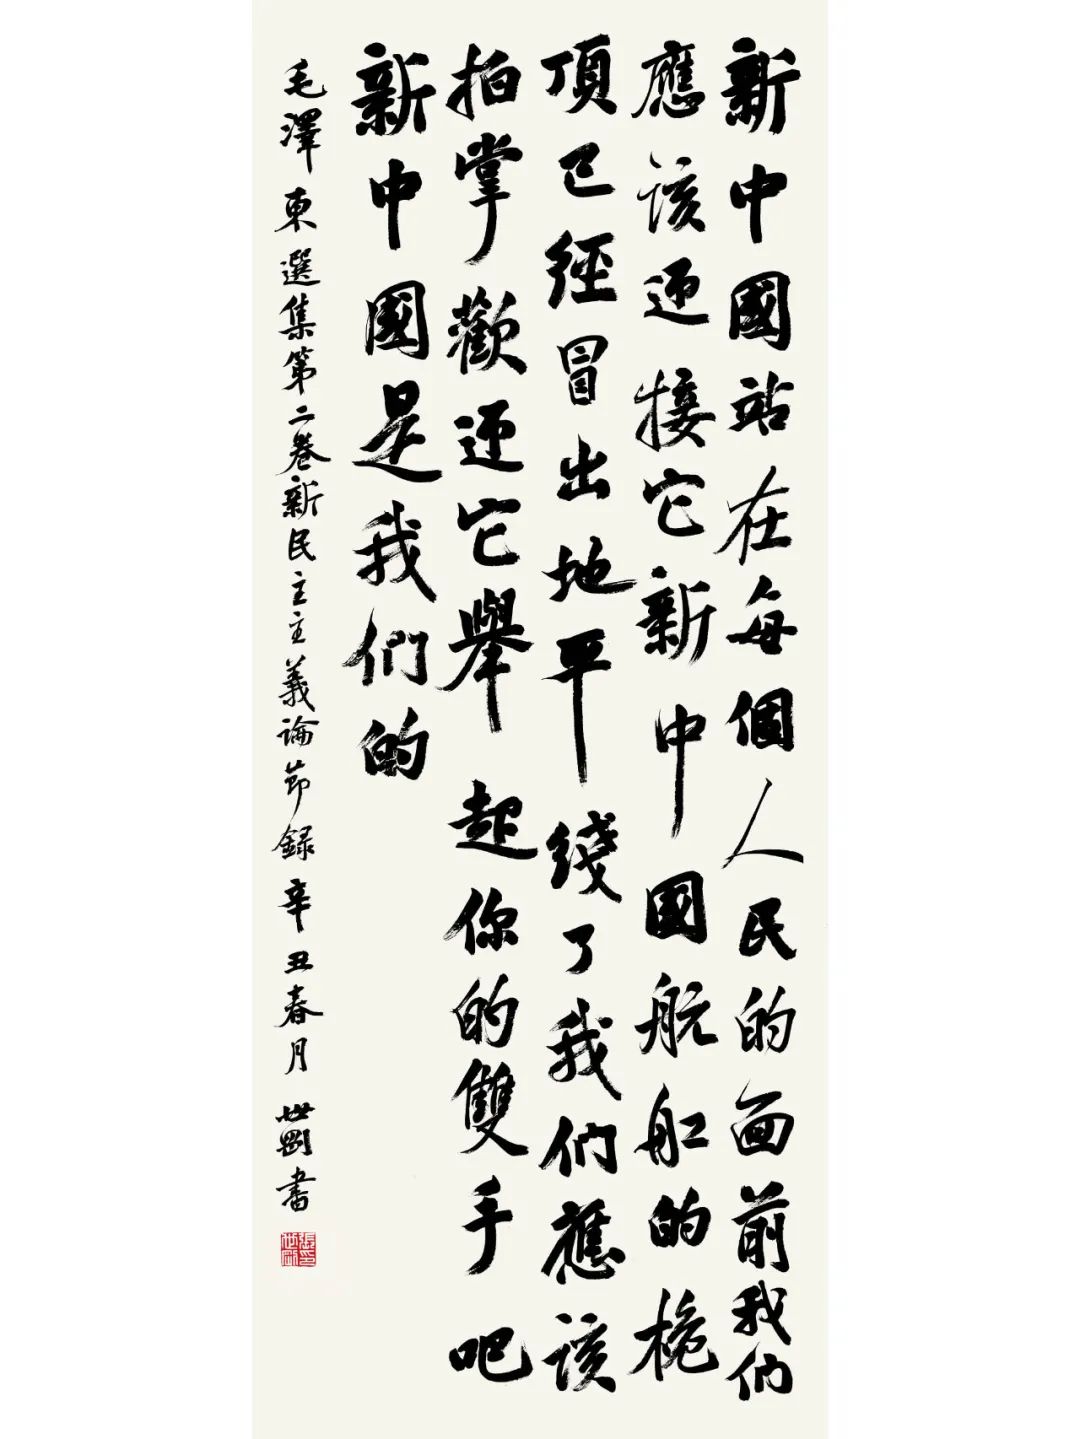 新中國站在每個人民的面前我们
應该迎接它新中國航船的桅
頂已經冒出地平綫了我们應该
拍掌歡迎它舉起你的雙手吧
新中國是我们的
毛澤東選集第二卷新民主主義論節録辛丑春月世剛書
張世剛印